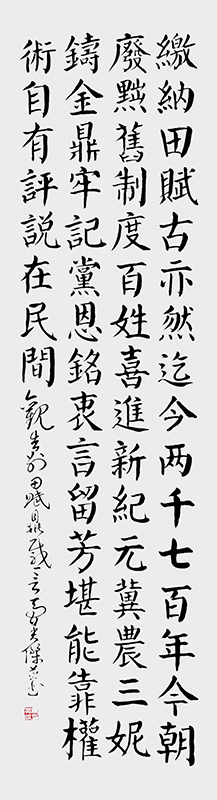 繳納田賦古亦然迄今两千七百年今朝
廢黜舊制度百姓喜進新紀元冀農三妮
鑄金鼎牢記黨恩銘衷言留芳堪能靠權
術自有評説在民間觀告别田賦鼎感言